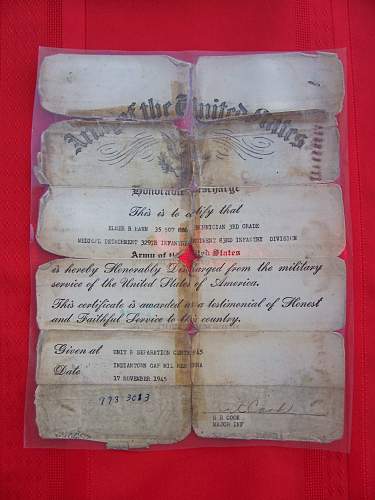 Army of the United States
Honorable Discharge
This is to certify that
ELMER R HAHN 35 507 TECHNICIAN 3RD GRADE
MEDICAL DETACHMENT 329TH INFANTRY REGIMENT 83RD INFANTRY DIVISION
Army of the United States
is hereby Honorably Discharged from the military
service of the United States of America.
This certificate is awarded as a testimonial of Honest
and Faithful Service to this country.
Given at UNIT B SEPARATION CENTER 45
INDIANTOWN GAP MIL RES PENNA
Date 17 NOVEMBER 1945
Cook
773 3013
H R COOK
MAJOR INF